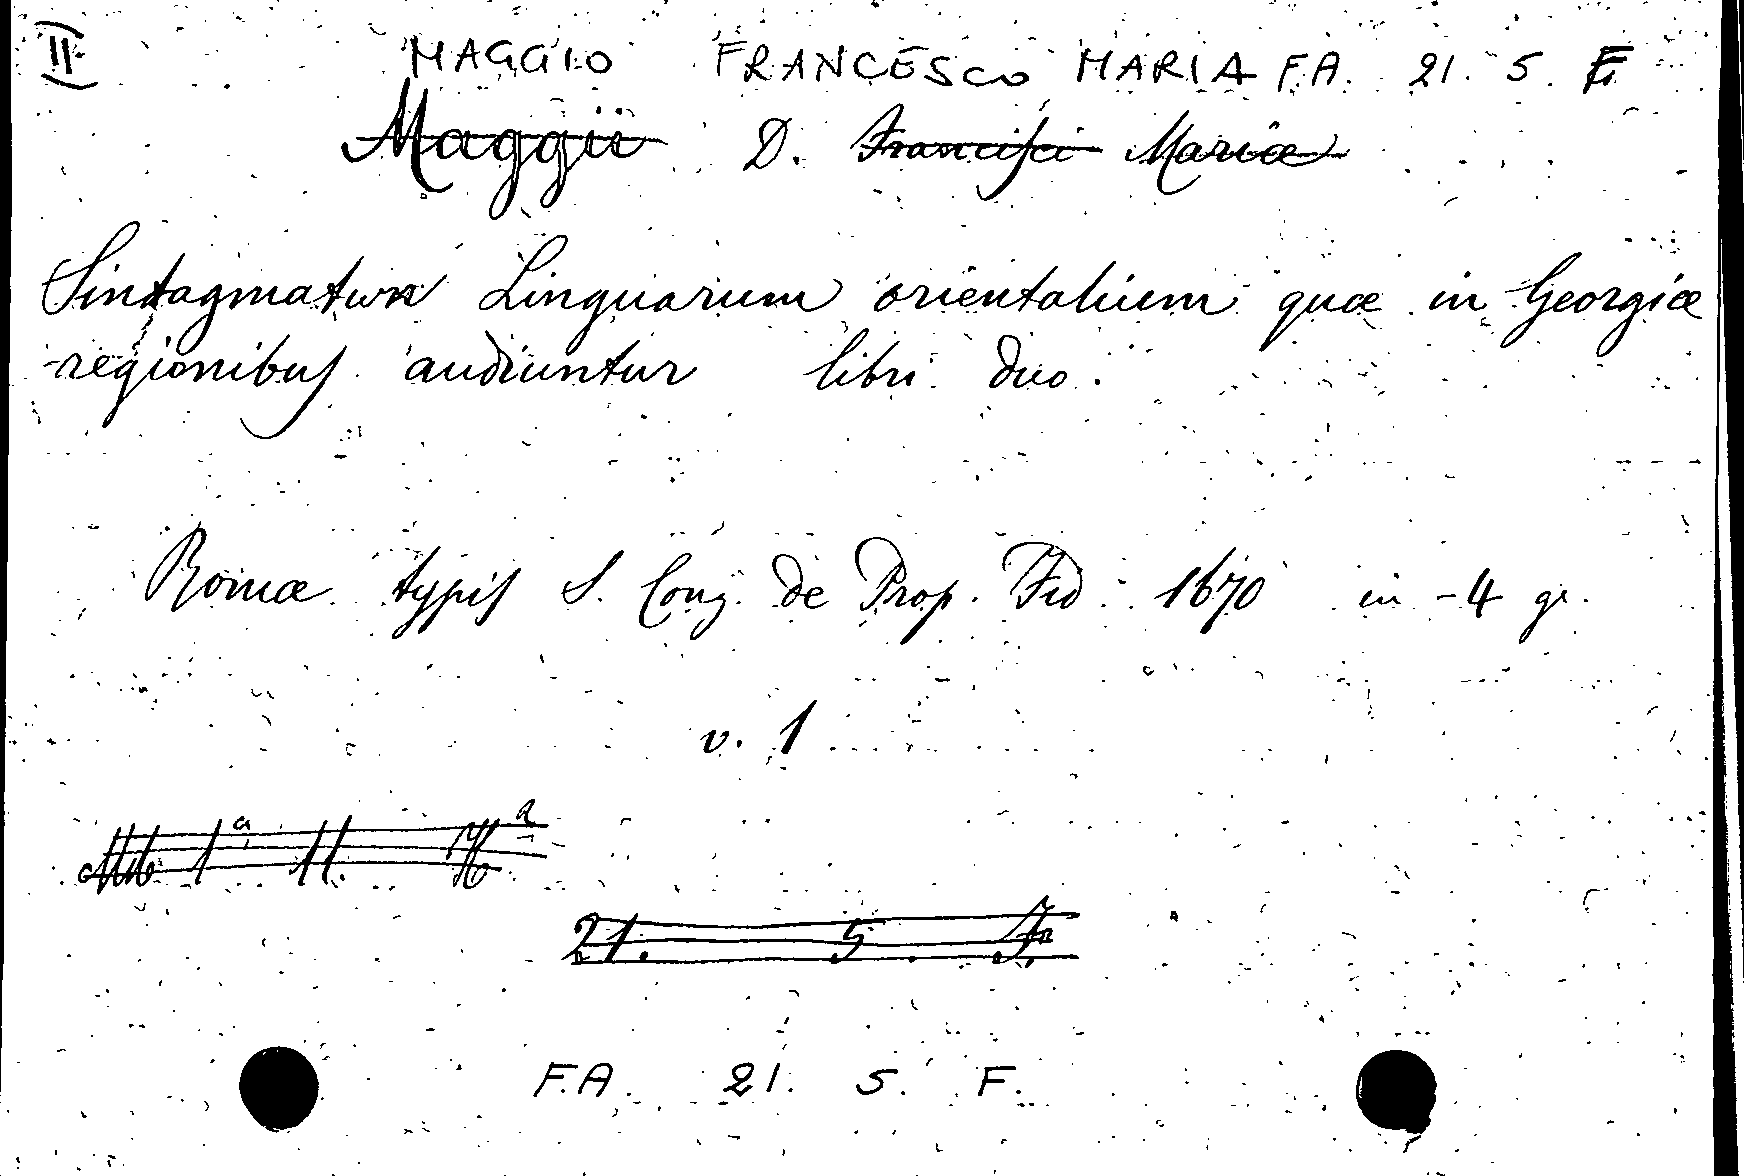 II
MAGGIO FRANCESCO MARIA F.A. 21. 5. F
Maggii D. Francisci Mariæ
Sintagmatwn Linguarum orientalium quæ in Georgiæ
regionibus audiuntur libri duo.
Romæ typis S. Cong. de Prop. Fid. 1670 in-4 gr.
v. 1
1ª 11.
21. 5. F.
F.A. 21. 5. F.